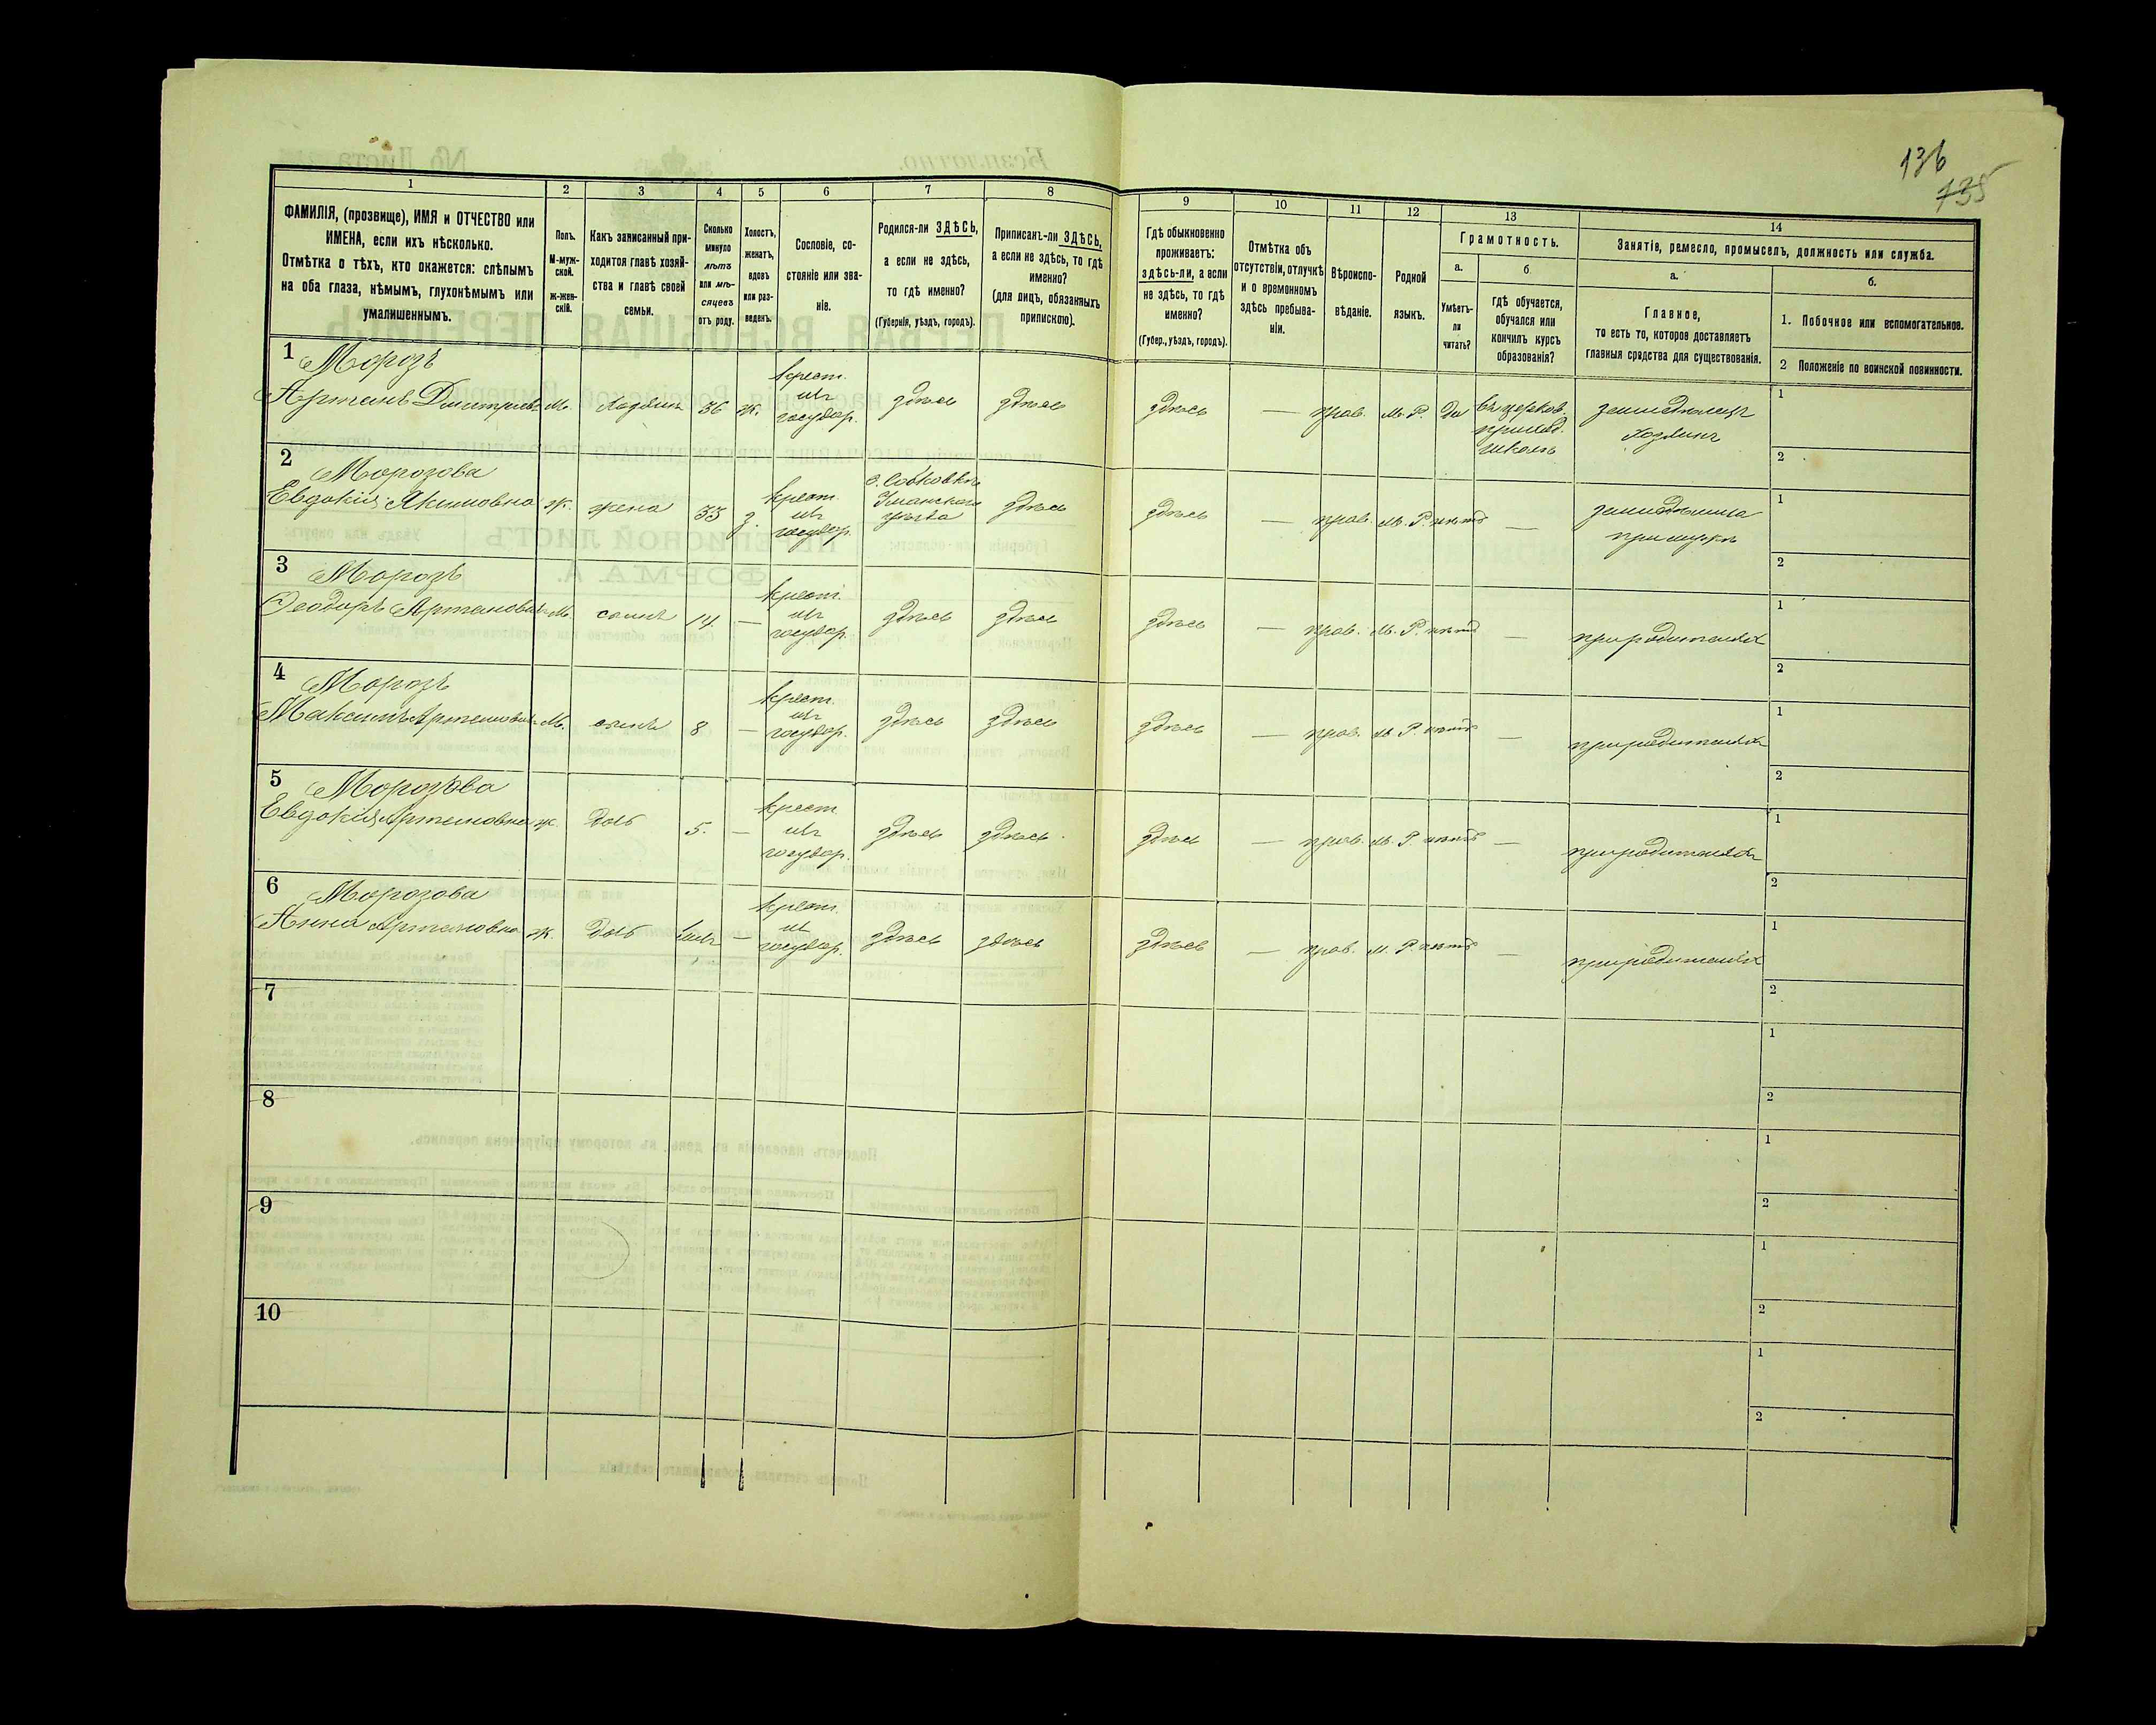 136
135
1
2
3
4
5
6
7
8
9
10
11
12
13
14
ФАМИЛІЯ, (прозвище), ИМЯ и ОТЧЕСТВО или
ИМЕНА, если ихъ нѣсколько.
Отмѣтка о тѣхъ, кто окажется: слѣпымъ
на оба глаза, нѣмымъ, глухонѣмымъ или
умалишеннымъ.
Полъ.
М-муж-
ской.
ж-жен-
скій.
Какъ записанный при-
ходится главѣ хозяй-
ства и главѣ своей
семьи.
Сколько
минуло
лѣтъ
или мѣ-
сяцевъ
отъ роду.
Холостъ,
женатъ,
вдовъ
или раз-
веденъ.
Сословіе, со-
стояніе или зва-
ніе.
Родился-ли ЗДѢСЬ,
а если не здѣсь,
то гдѣ именно?
(Губернія, уѣздъ, городъ).
Приписанъ-ли ЗДѢСЬ,
а если не здѣсь, то гдѣ
именно?
(для лицъ, обязанныхъ
припискою).
Гдѣ обыкновенно
проживаетъ:
здѣсь-ли, а если
не здѣсь, то гдѣ
именно?
(Губер., уѣздъ, городъ).
Отмѣтка объ
отсутствіи, отлучкѣ
и о временномъ
здѣсь пребыва-
ніи.
Вѣроиспо-
вѣданіе.
Родной
языкъ.
Грамотность.
а.
Умѣетъ-
ли
читать?
б.
гдѣ обучается,
обучался или
кончилъ курсъ
образованія?
Занятіе, ремесло, промыселъ, должность или служба.
а.
Главное,
то есть то, которое доставляетъ
главныя средства для существованія.
б.
1. Побочное или вспомогательное.
2 Положеніе по воинской повинности.
1 Морозъ
Артемъ Дмитріев. М. хозяинъ 36 ж. крест. изъ государ. здѣсь здѣсь здѣсь — прав. М. Р. да въ церков. приход. школѣ земледѣлецъ хозяинъ
1
2
2 Морозова
Евдокія Якимовна ж. жена 33 з. крест. изъ государ. с. Собковка Уманскаго уѣзда здѣсь здѣсь — прав. М. Р. нѣтъ — при мужѣ
1
2
3 Морозъ
Ѳеодоръ Артемовъ М. сынъ 14 — крест. изъ государ. здѣсь здѣсь здѣсь — прав. М. Р. нѣтъ — при родителяхъ
1
2
4 Морозъ
Максимъ Артемовъ М. сынъ 8 — крест. изъ государ. здѣсь здѣсь здѣсь — прав. М. Р. нѣтъ — при родителяхъ
1
2
5 Морозова
Евдокія Артемовна ж. дочь 5. — крест. изъ государ. здѣсь здѣсь здѣсь — прав. М. Р. нѣтъ — при родителяхъ
1
2
6 Морозова
Анна Артемовна ж. дочь — крест. изъ государ. здѣсь здѣсь здѣсь — прав. М. Р. нѣтъ — при родителяхъ
1
2
7
1
2
8
1
2
9
1
2
10
1
2